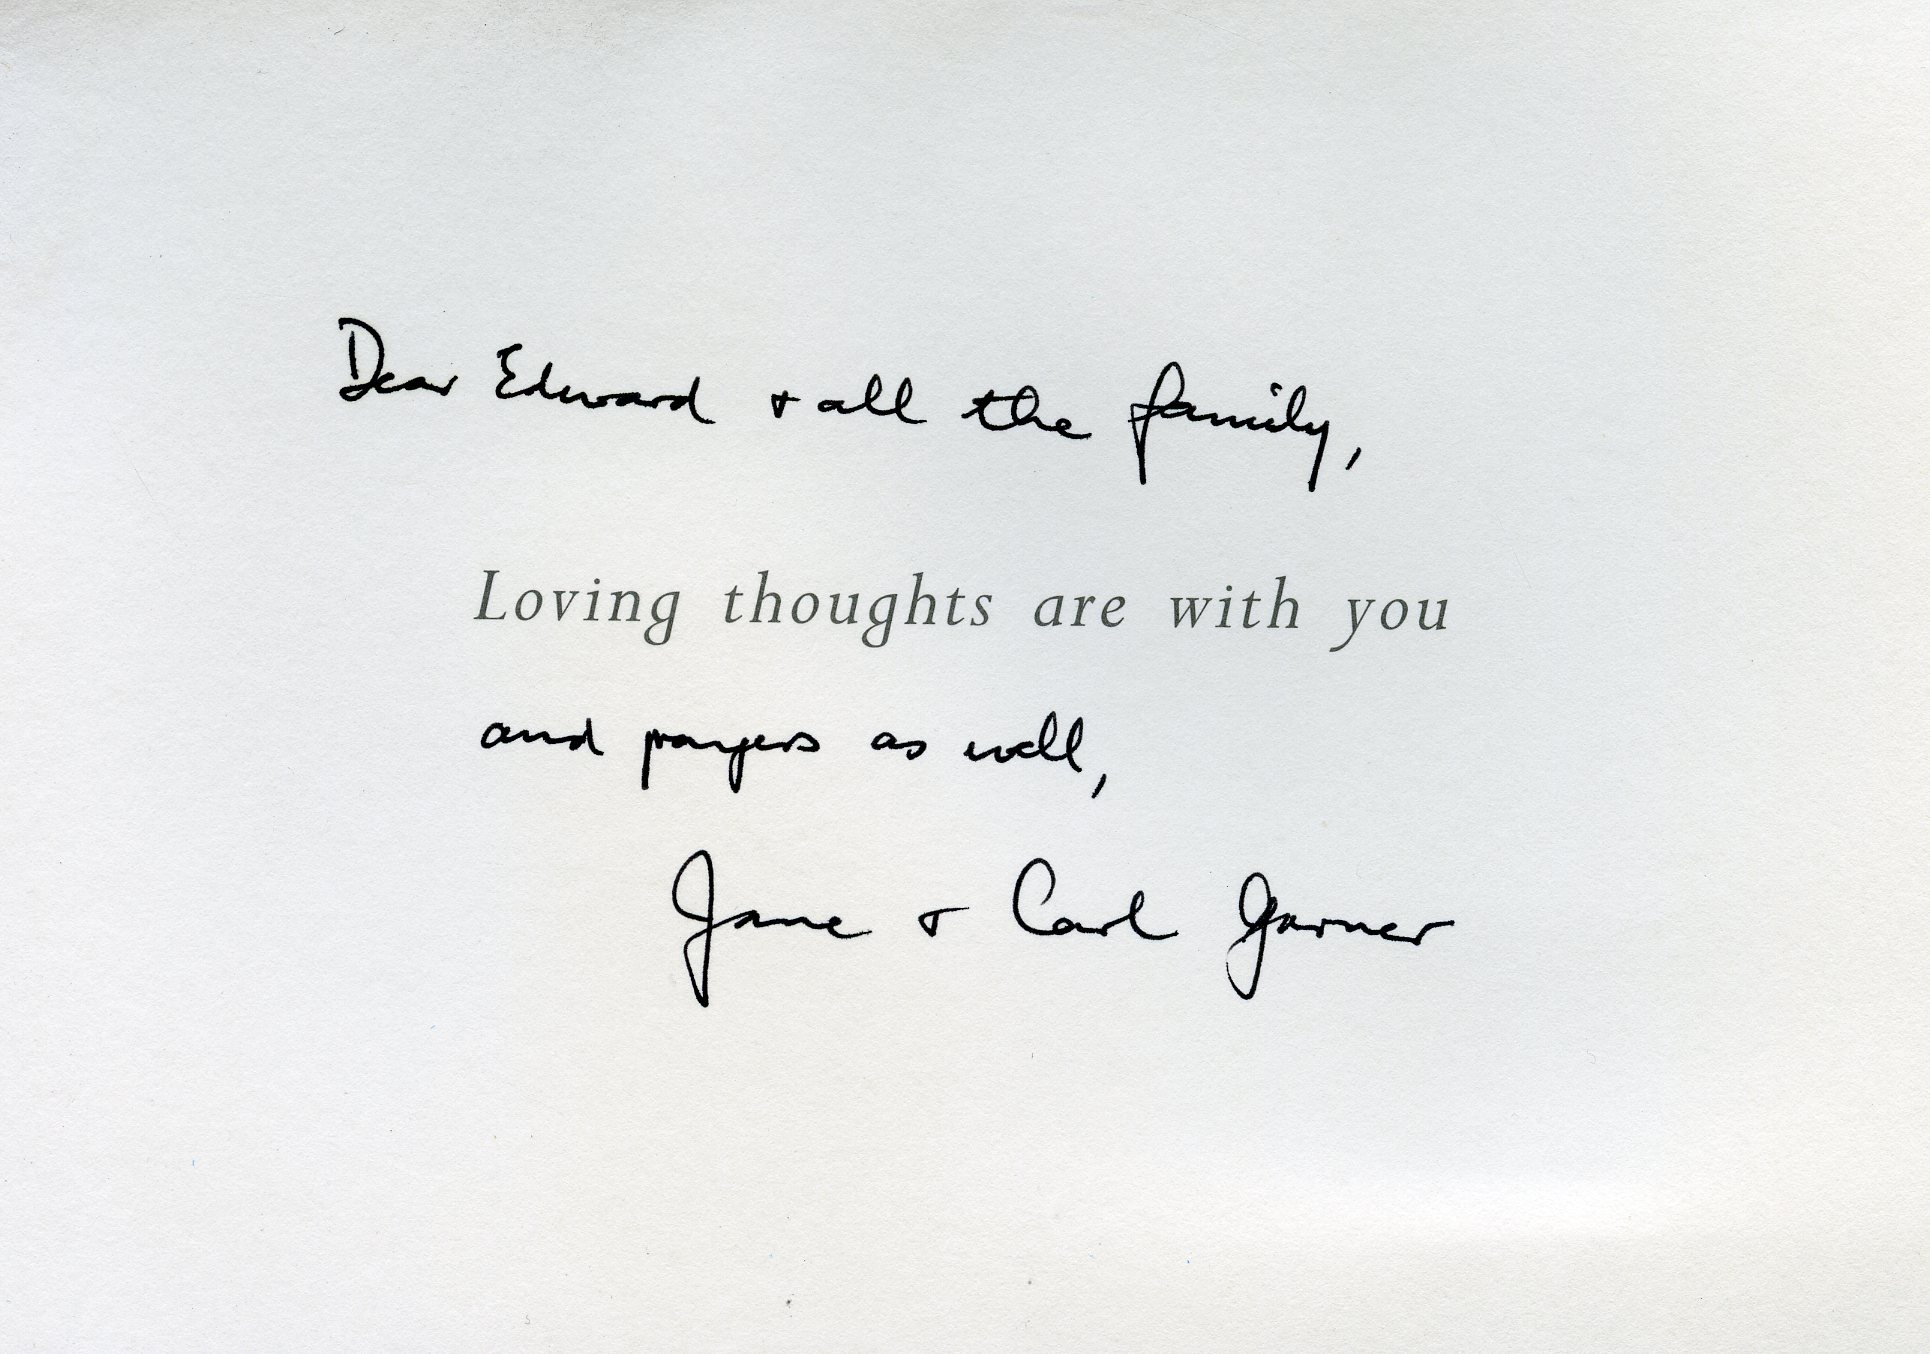 Dear Edward + all the family,
Loving thoughts are with you
and prayers as well,
Jane + Carl Garner